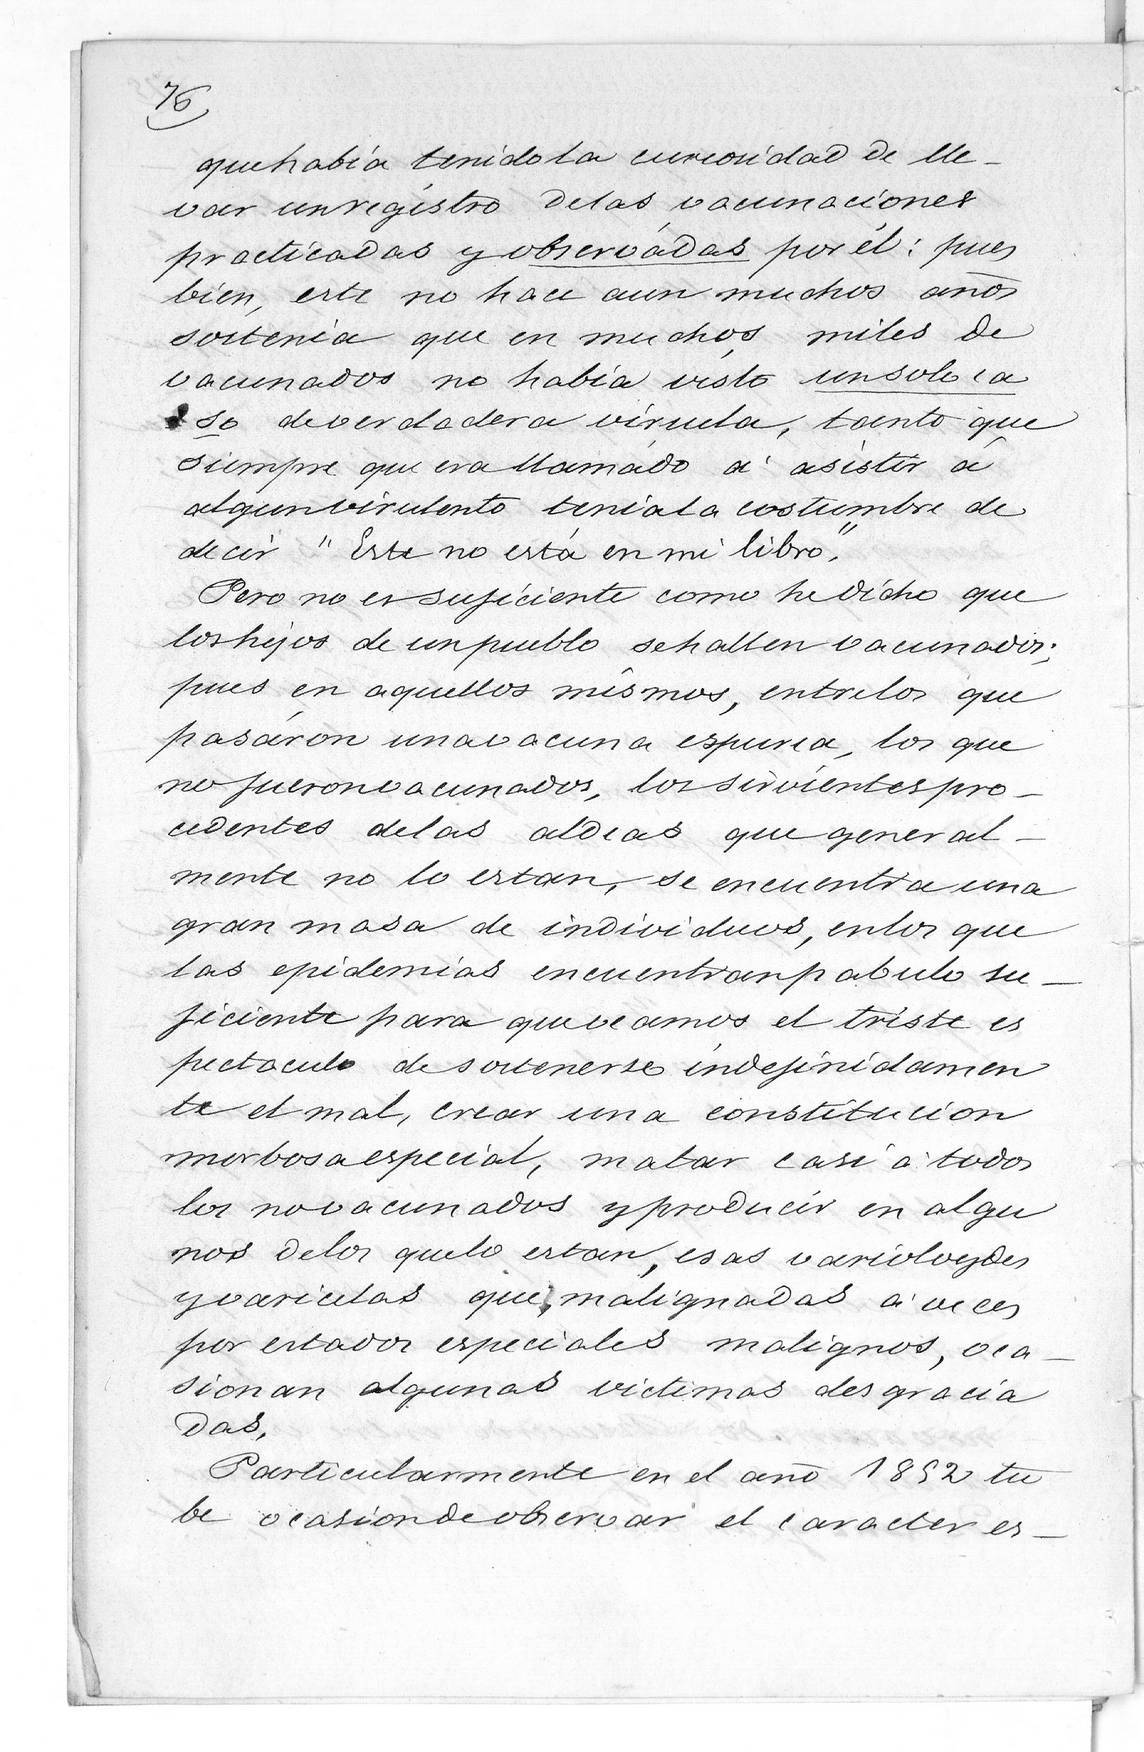 76
que había tenido la curiosidad de lle-
var un registro de las vacunaciones
practicadas y observádas por él: pues
bien, este no hace aun muchos años
sostenia que en muchos miles de
vacunados no había visto un solo ca
so de verdadera viruela, tanto que
siempre que era llamádo á asistir á
algun virulento tenia la costumbre de
decir "Este no está en mi libro".
Pero no es suficiente como he dicho que
los hijos de un pueblo se hallen vacunados;
pues en aquellos mismos, entre los que
pasáron una vacuna espurea, los que
no fueron vacunados, los sirvientes pro-
cedentes de las aldeas que general-
mente no lo estan, se encuentra una
gran masa de individuos, en los que
las epidemias encuentran pabulo su-
ficiente para que veamos el triste es
pectaculo de sostenerse indefinidamen
te el mal, crear una constitucion
morbosa especial, matar casi á todos
los no vacunados y producir en algu
nos de los que lo estan, esas varioloydes
y varicelas que, malignadas á veces
por estados especiales malignos, oca-
sionan algunas victimas desgracia
das.
Particularmente en el año 1852 tu
be ocasion de observar el caracter es-